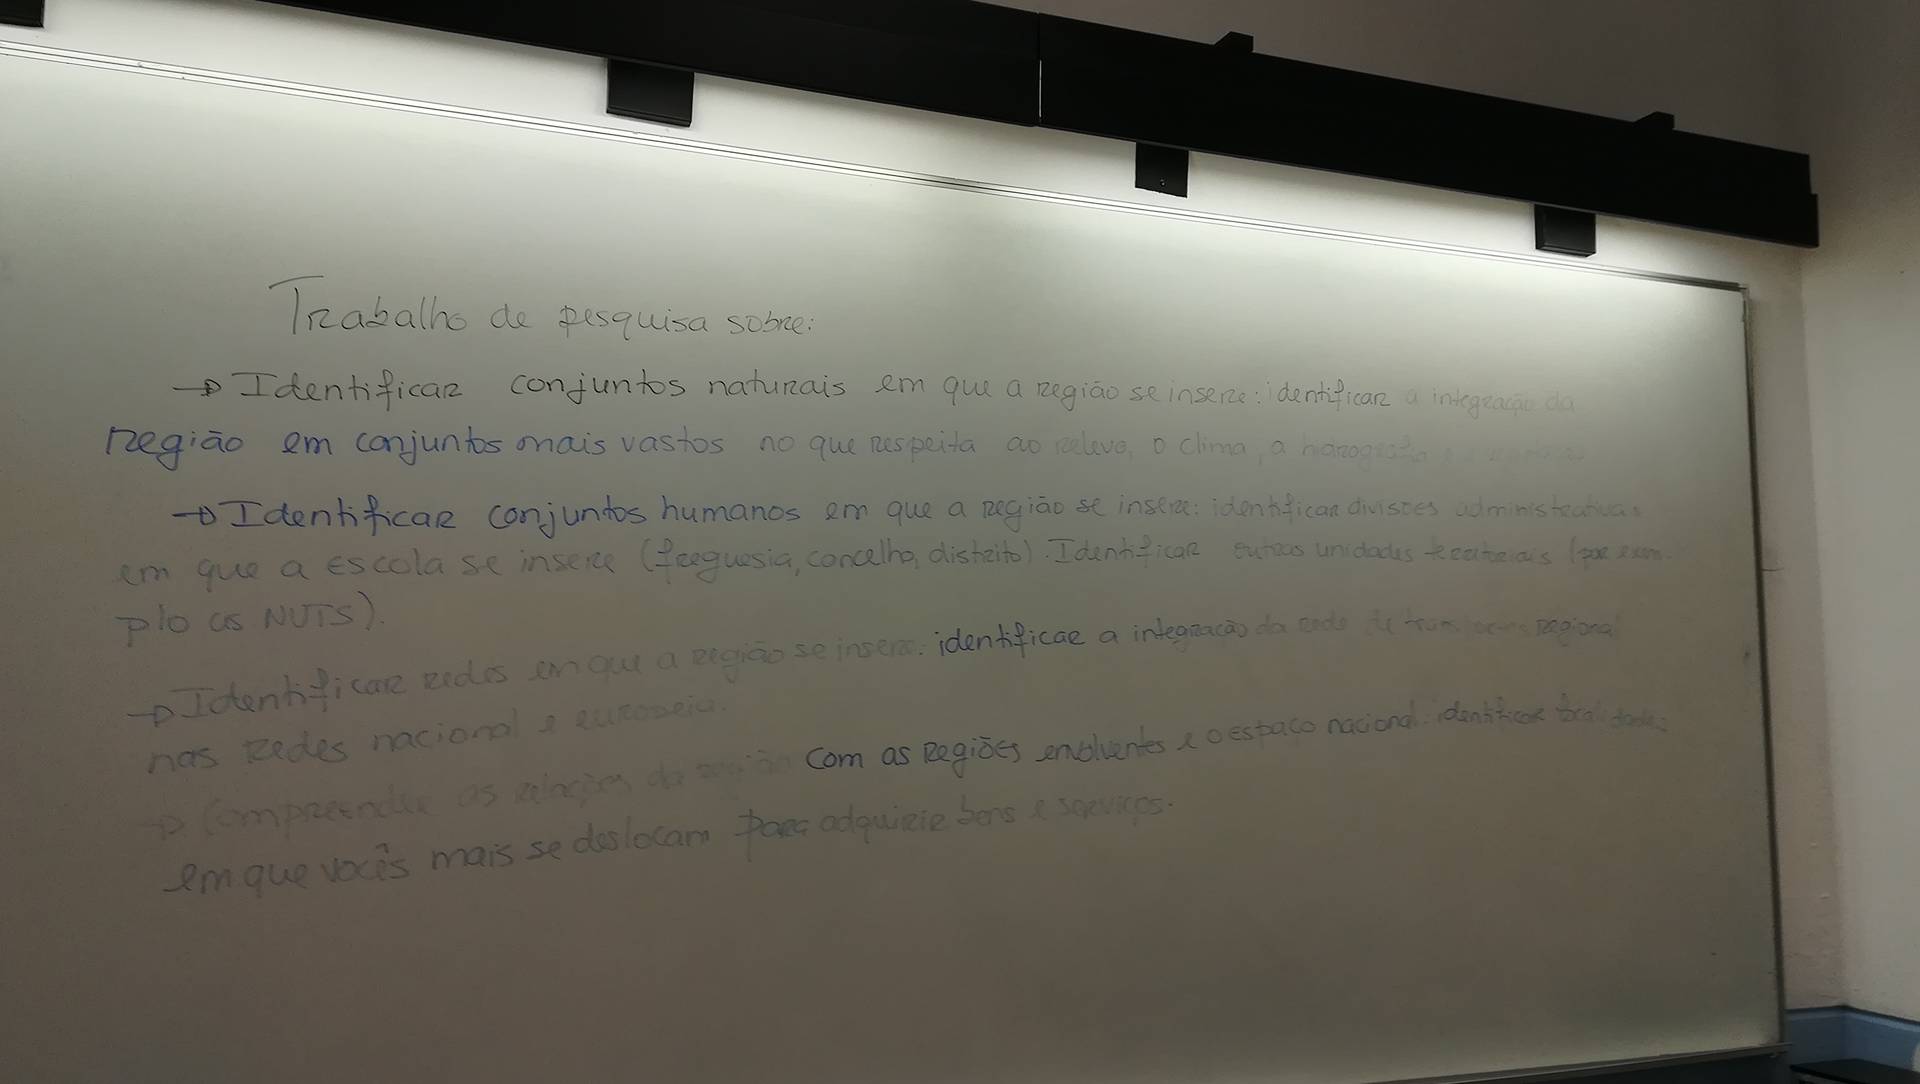 Trabalho de pesquisa sobre:
→ Identificar conjuntos naturais em que a região se insere: identificar a integração da
região em conjuntos mais vastos no que respeita ao relevo, o clima, a
→ Identificar conjuntos humanos em que a região se insere: identificar divisões administrativas
em que a escola se insere (freguesia, concelho, distrito). Identificar outras unidades territoriais (por exem-
plo as NUTS).
→ Identificar redes em que a região se insere: identificar a integração da rede de regional
nas redes nacional e europeia.
→ Compreender as relações da região com as regiões envolventes e o espaço nacional: identificar localidades
em que vocês mais se deslocam para adquirir bens e serviços.